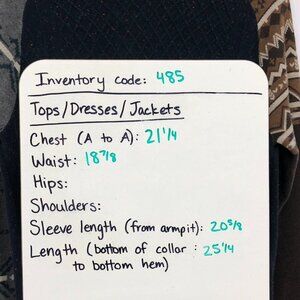 Inventory code: 485
Tops/Dresses/Jackets
Chest (A to A): 21 1/4
Waist: 18 7/8
Hips:
Shoulders:
Sleeve length (from armpit): 20 5/8
Length (bottom of collar : 25 1/4
to bottom hem)